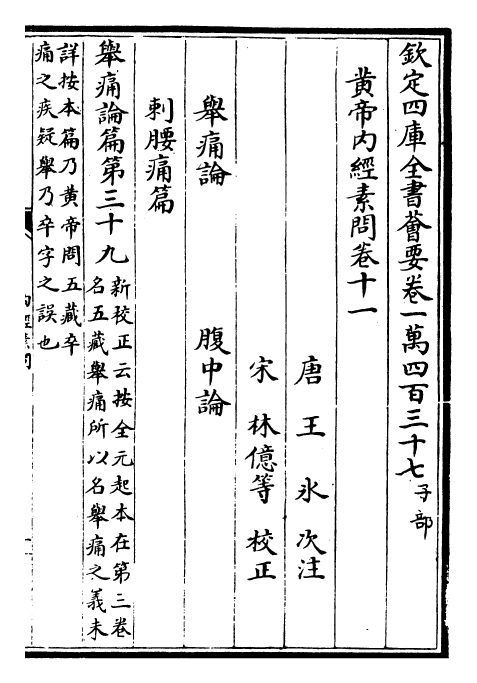 欽定四庫全書薈要卷一萬四百三十七子部
黄帝内經素問卷十一
唐 王 氷 次注
宋 林億等 校正
舉痛論 腹中論
刺腰痛篇
舉痛論篇第三十九新校正云按全元起本在第三卷
名五藏舉痛所以名舉痛之義未
詳按本篇乃黄帝問五藏卒
痛之疾疑舉乃卒字之誤也